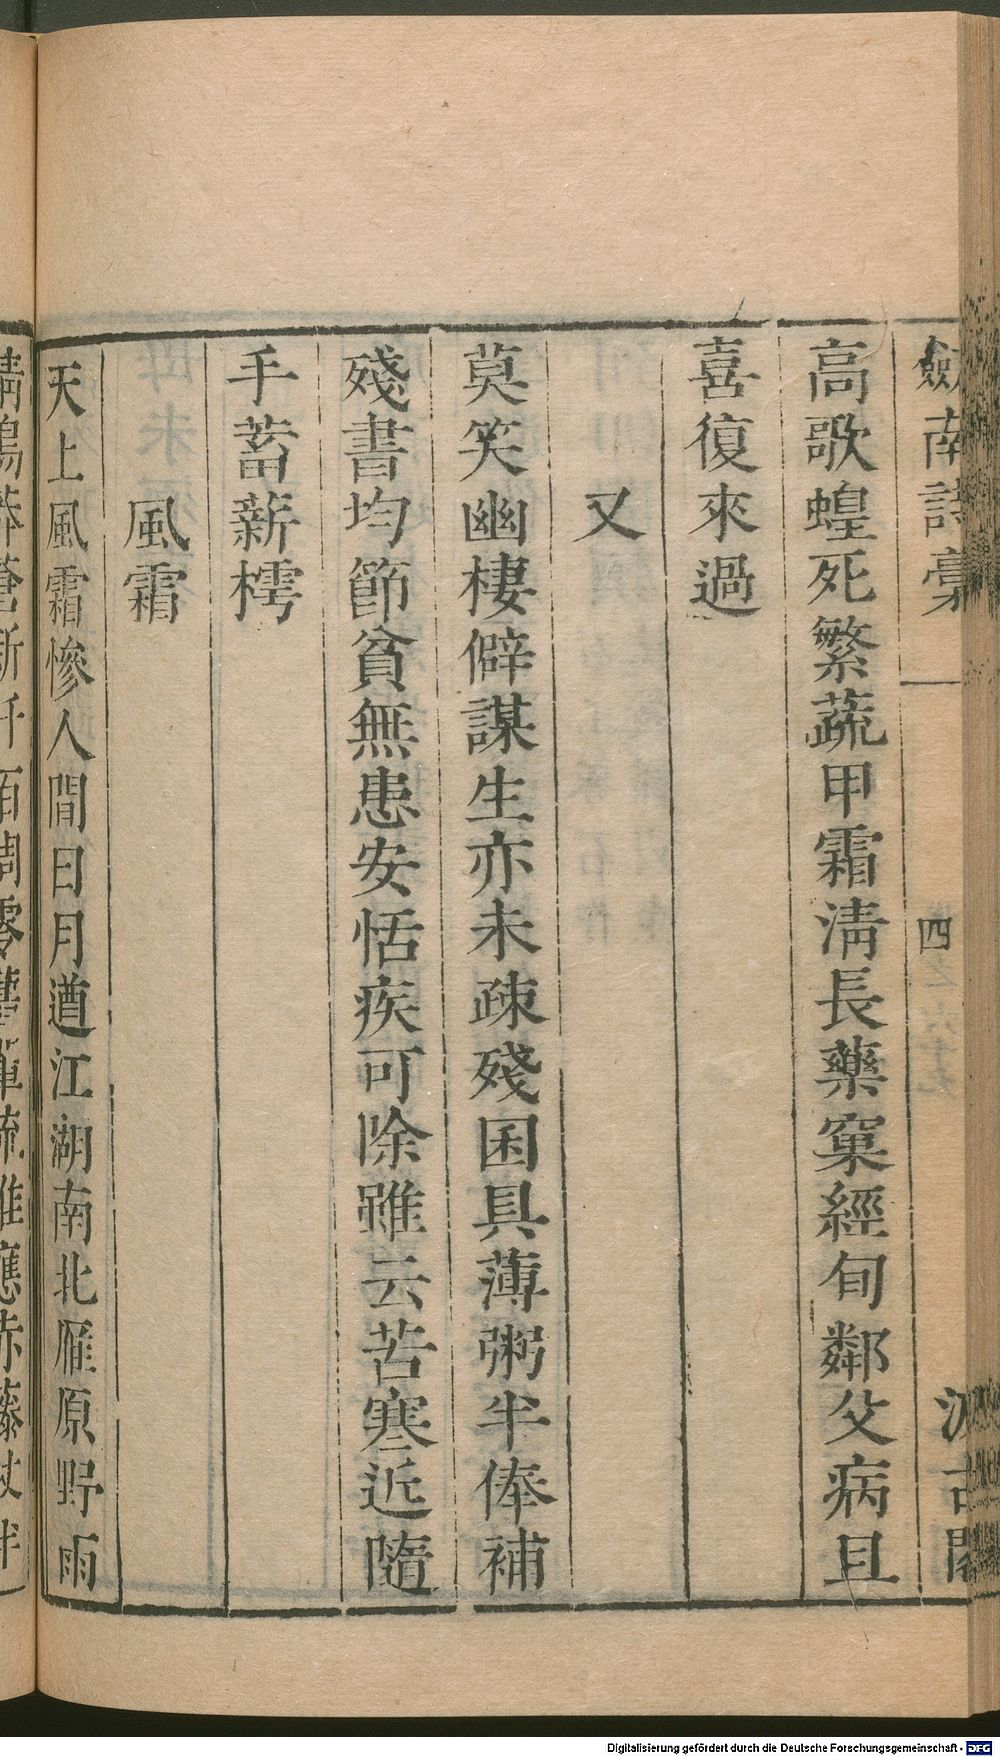 劔南詩稾
四
汲古閣
高歌蝗死繁蔬甲霜淸長藥窠經旬鄰父病且
喜復來過
又
莫笑幽棲僻謀生亦未疎殘囷具薄粥半俸補
殘書均節貧無患安恬疾可除雖云苦寒近隨
手蓄薪樗
風霜
天上風霜慘人間日月遒江湖南北雁原野雨
Digitalisierung gefördert durch die Deutsche Forschungsgemeinschaft - DFG